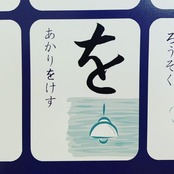 を
あかりをけす
ろうそく